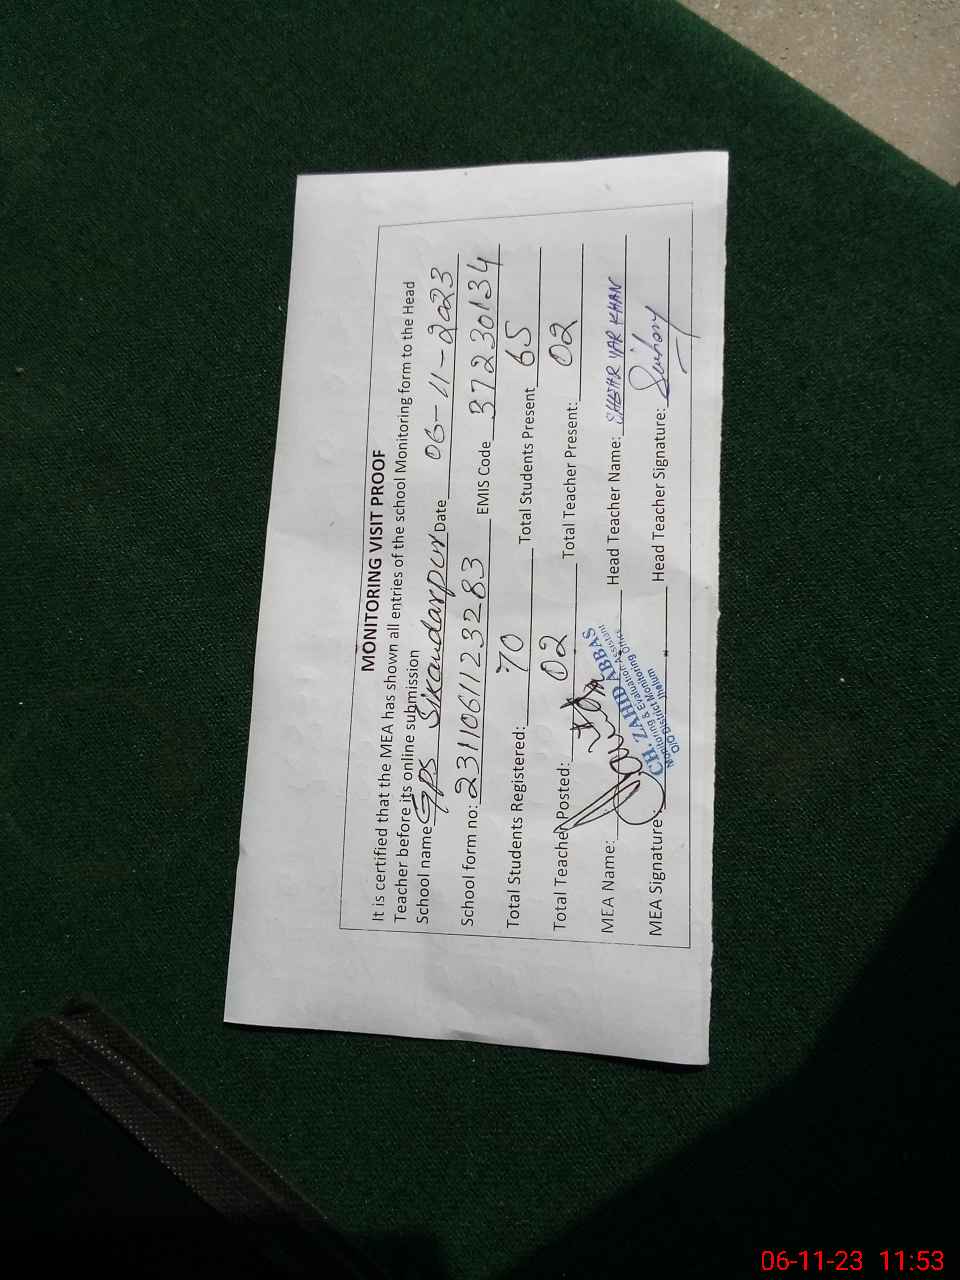 MONITORING VISIT PROOF
It is certified that the MEA has shown all entries of the school Monitoring form to the Head
Teacher before its online submission
School name GPS Sikandarpur Date 06-11-2023
School form no: 2311061123283 EMIS Code 37230134
Total Students Registered: 70 Total Students Present 65
Total Teacher Posted: 02 Total Teacher Present: 02
MEA Name: Head Teacher Name: YAR KHAN
MEA Signature: Head Teacher Signature:
CH. ZAHID ABBAS
Monitoring & Evaluation Assistant
O/O District Monitoring Office
Jhelum
06-11-23 11:53